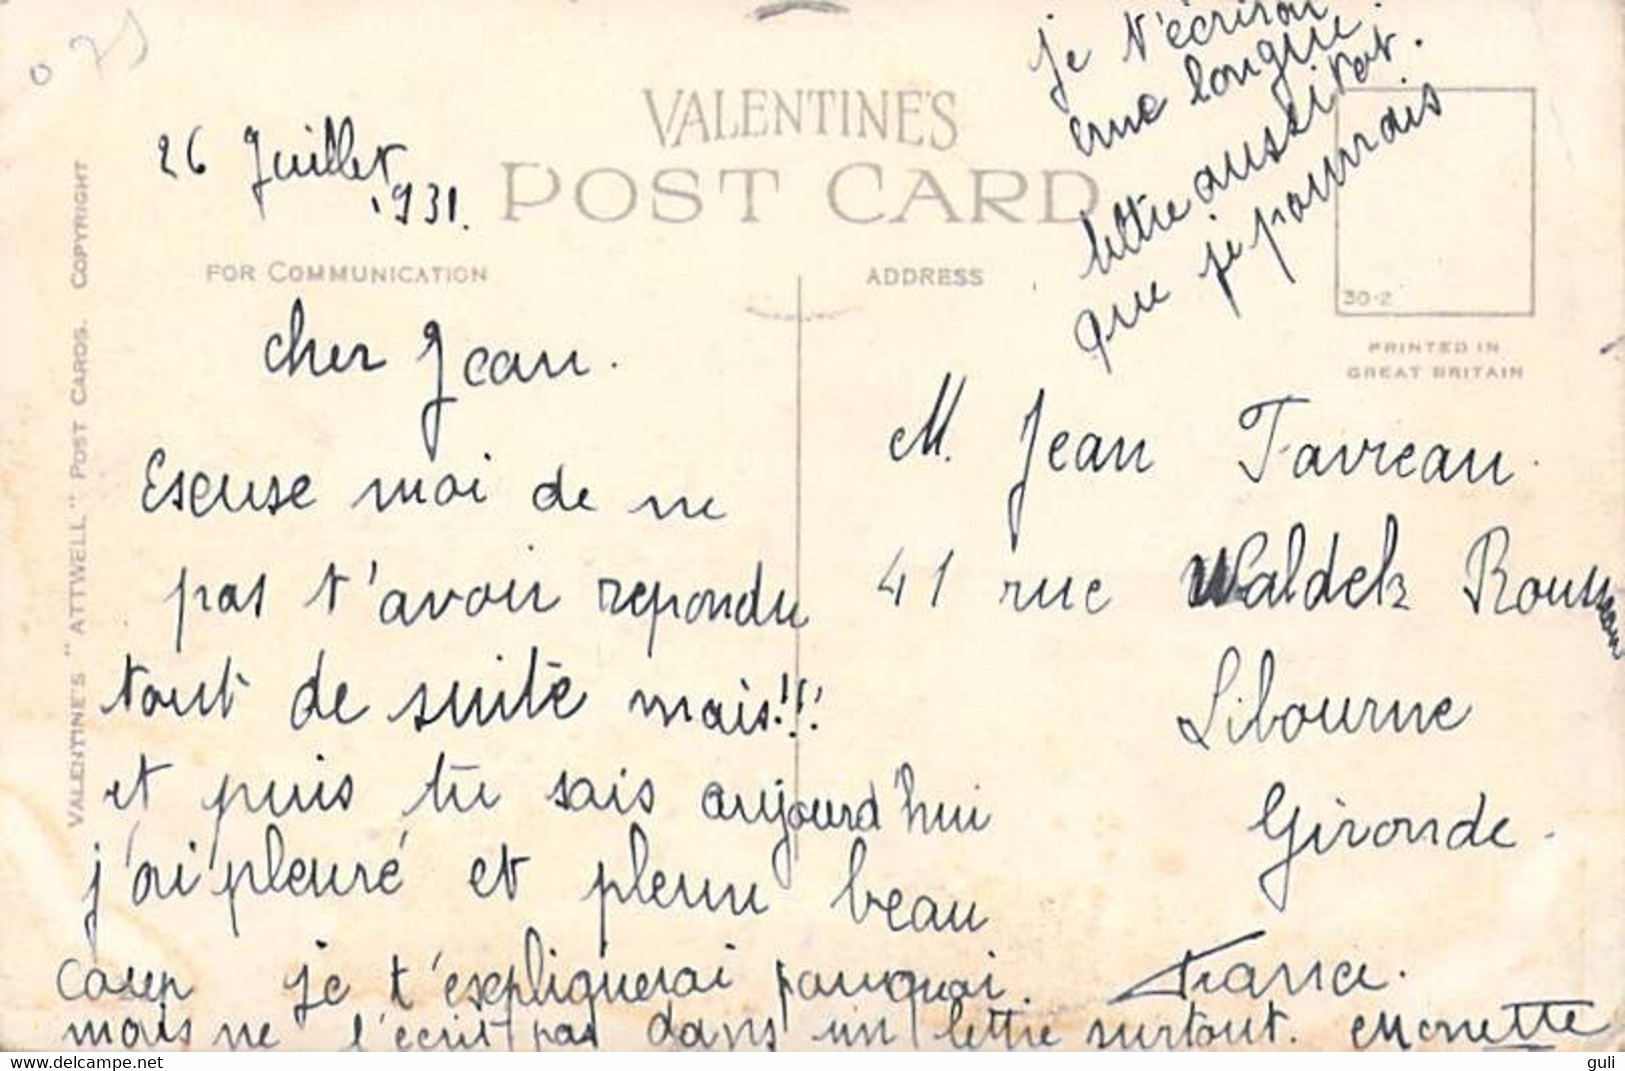 075
26 Juillet
1931.
VALENTINE'S
POST CARD
FOR COMMUNICATION
ADDRESS
VALENTINE'S "ATTWELL" POST CARDS. COPYRIGHT
cher Jean.
Escuse moi de ne
pas t'avoir repondu
tout de suite mais!!!
et puis tu sais aujourd'hui
j'ai pleuré et pleuré beau
coup je t'expliquerai pourquoi.
mais ne l'écrit pas dans un lettre surtout. Monette
je t'écrirai
une longue
lettre aussitot.
que je pourrais
30-2
PRINTED IN
GREAT BRITAIN
M. Jean Favreau.
41 rue Waldek Rousseau
Libourne
Gironde.
France.
guli